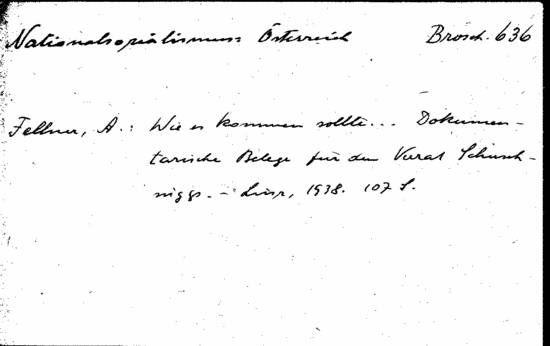 Nationalsozialismus Österreich Brosch. 636
Fellner, A.: Wie es kommen sollte... Dokumen-
tarische Belege für den Verrat Schusch-
niggs. - Linz, 1938. 107 S.